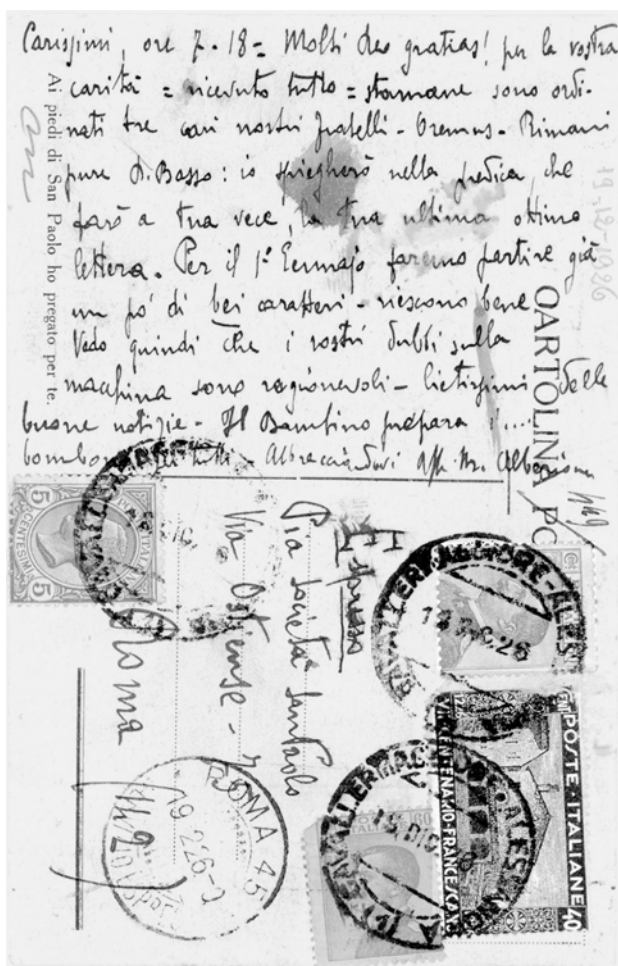 Carissimi, ore 7.18 = Molti deo gratias! per la vostra
carità = ricevuto tutto = stamane sono ordi-
nati tre cari nostri fratelli - Oremus - Rimani
pure D. Basso: io spiegherò nella predica, che
farò a tua vece, la tua ultima ottima
lettera. Per il 1° Gennajo faremo partire già
un po' di bei caratteri - riescono bene
Vedo quindi che i vostri dubbi sulla
macchina sono ragionevoli - lietissimi delle
buone notizie - Il Bambino prepara i....
bombons per tutti Abbracciandovi aff. M. Alberione
Ai piedi di San Paolo ho pregato per te.
19-12-1926
CARTOLINA PO
Espresso
Pia Società San Paolo
Via Ostiense -
Roma
POSTE ITALIANE
CENTESIMI
5
5
POSTE·ITALIANE
VII CENTENARIO·FRANCESCANO
40
ROMA 45
19.12.26-2